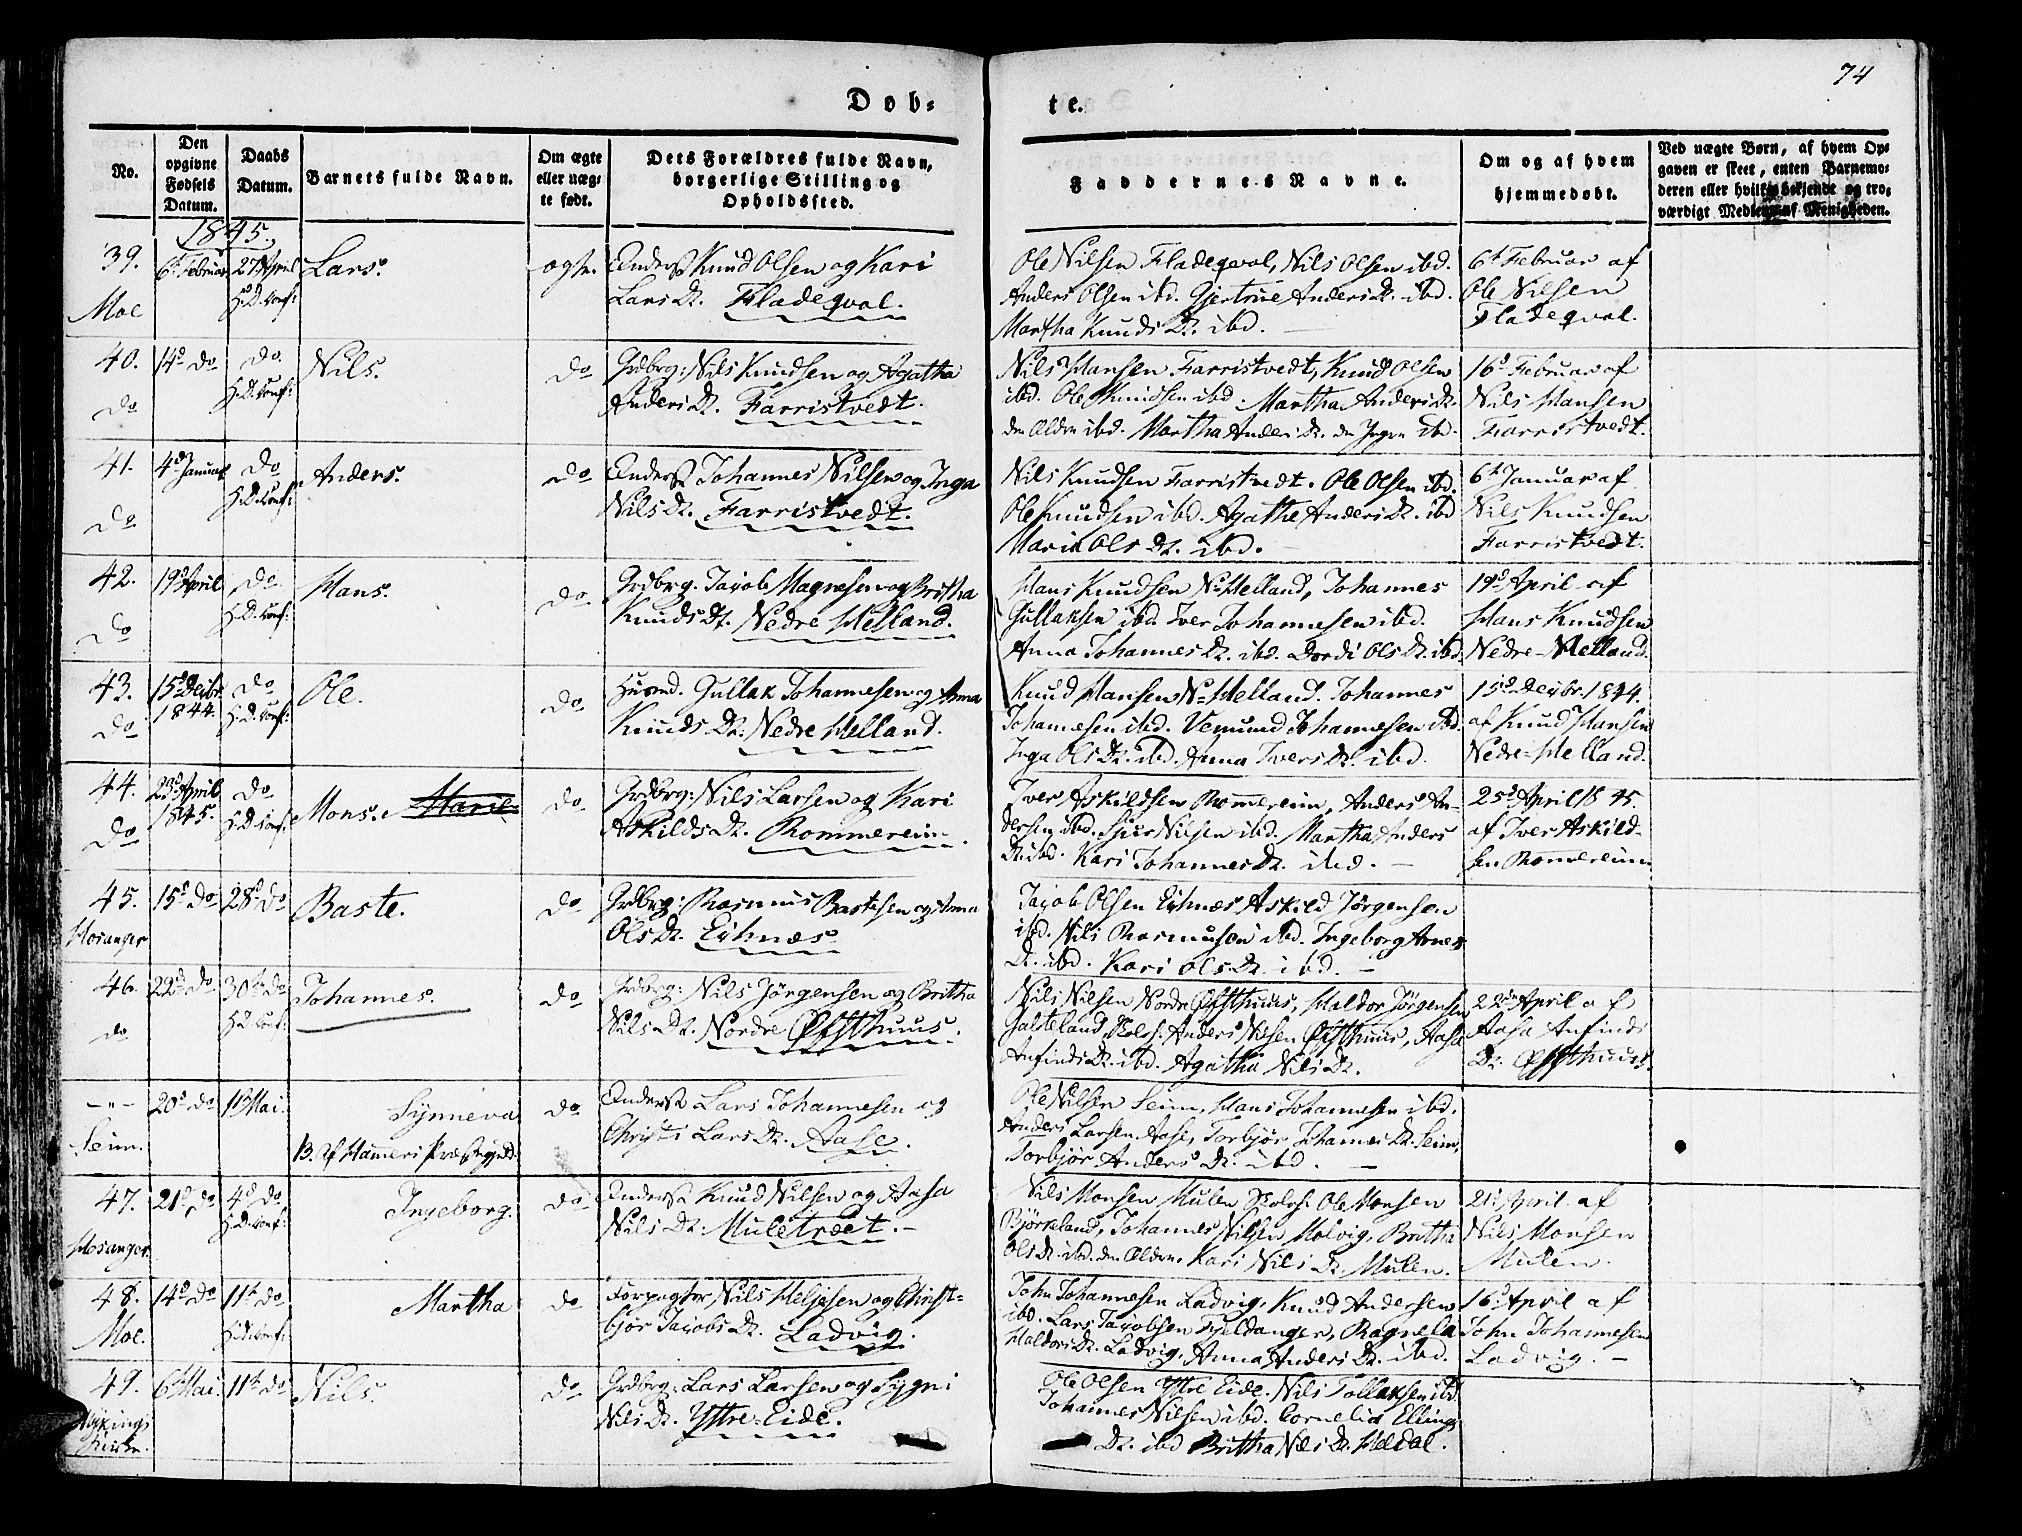 74
Døb-
te.
No.
Den opgivne Fødsels Datum.
Daabs Datum.
Barnets fulde Navn.
Om ægte eller uæg-te født.
Dets Forældres fulde Navn, borgerlige Stilling og Opholdssted.
Faddernes Navne.
Om og af hvem hjemmedøbt.
Ved uægte Børn, af hvem Op-
gaven er skeet, enten Barnemo-
deren eller hvilke bekjendte og tro-
værdigt Medlem af Menigheden.
1845.
39. 6t Februar 27d April Lars. ægte. Knud Olsen og Kari
Moe H:D. Conf: Lars Dt. Fladeqval.
Ole Nilsen Fladeqval, Nils Olsen ibd.
Anders Olsen ibd. Gjertrue Anders Dt. ibd.
Martha Knuds Dt. ibd.
6t Februar af
Ole Nilsen
Fladeqval.
40. 14d do do Nils. do Grdbrg: Nils Knudsen og Agatha
do H:D. Conf: Anders Dt. Farristvedt.
Nils Hansen Farristvedt, Knud Olsen
ibd. Ole Knudsen ibd. Martha Anders Dt.
den Ældre ibd. Martha Anders Dt. den Yngre ibd.
16d Februar af
Nils Hansen
Farristvedt.
41. 4d Januar do Anders. do Johannes Nilsen og Inga
do H:D. Conf: Nils Dt. Farristvedt.
Nils Knudsen Farristvedt. Ole Olsen ibd.
Ole Knudsen ibd. Agathe Anders Dt. ibd
Maria Ols Dt. ibd.
6t Januar af
Nils Knudsen
Farristvedt.
42. 19d April do Hans. do Grdbrg. Jacob Magnesen og Britha
do H:D. Conf: Knuds Dt. Nedre Helland.
Hans Knudsen N. Helland, Johannes
Gullaksen ibd. Iver Johannesen ibd.
Anna Johannes Dt. ibd. Dordi Ols Dt. ibd.
19d April af
Hans Knudsen
Nedre-Helland.
43. 15d Decbr. do Ole. do Husmd. Gullak Johannesen og Anna
do 1844. H:D. Conf: Knuds Dt: Nedre Helland.
Knud Hansen N. Helland. Johannes
Johannesen ibd. Vemund Johannesen ibd.
Inga Ols Dt. ibd. Anna Ivers Dt. ibd.
15d Decbr. 1844.
af Knud Hansen
Nedre-Helland.
44. 23d April do Mons. do Grdbrg: Nils Larsen og Kari
do 1845. H:D Conf: Askilds Dt. Rommerein.
Iver Askildsen Rommereim, Anders An-
dersen ibd. Sjur Nilsen ibd. Martha Anders
Dt. ibd. Kari Johannes Dt. ibd.
25d April 1845.
af Iver Askild-
sen Rommereim
45. 15d do 28d do Baste. do Grdbrg: Rasmus Bastesen og Anna
Hosanger Ols Dt. Eyhnæs
Jacob Olsen Eyhnæs Askild Jørgensen
ibd. Nils Rasmussen ibd. Ingeborg Arnes
Dt. ibd. Kari Ols Dt. ibd.
46. 22d do 30d do Johannes. do Grdbrg: Nils Jørgensen og Britha
do H:D. Conf: Nils Dt. Nordre Øfsthuus.
Nils Nilsen Nordre Øfsthuus, Haldor Jørgensen
Galteland, Anders Nilsen Øfsthuus, Aasa
Anfinds Dt. ibd. Agatha Nils Dt.
22d April af
Aasa Anfinds
Dt. Øfsthuus.
-"- 20d do 1d Mai. Synneva do Lars Johannesen og
Seim. B. Af Hammers Præstegjeld. Christi Lars Dt. Aase.
Ole Nilsen Seim, Hans Johannesen ibd.
Anders Larsen Aase, Torbjør Johannes Dt. Seim,
Torbjør Anders Dt. ibd.
47. 21d do 4d do Ingeborg. do Knud Nilsen og Aasa
Hosanger. H:D. Conf: Nils Dt: Muletræet.
Nils Monsen Mulen Ole Monsen
Bjørkeland, Johannes Nilsen Molvig, Britha
Ols Dt. ibd. den Ældre. Kari Nils Dt. Mulen.
21d April af
Nils Monsen
Mulen.
48. 14d do 11t do Martha do Forpagter Nils Heljesen og Christ-
Moe. H:D: Conf: bjør Jacobs Dt. Ladvig.
John Johannesen Ladvig, Knud Andersen
ibd. Lars Jacobsen Fjeldanger, Ragnela
Haldors Dt. Ladvig, Anna Anders Dt. ibd.
16d April af
John Johannesen
Ladvig.
49. 6t Mai 11t do Nils. do Grdbrg: Lars Larsen og Sygni
Nils Dt. Yttre-Eide.
Ole Olsen Yttre Eide. Nils Tollaksen ibd
Johannes Nilsen ibd. Cornelia Ellings
Dt. ibd Britha Nils Dt. Hældal.